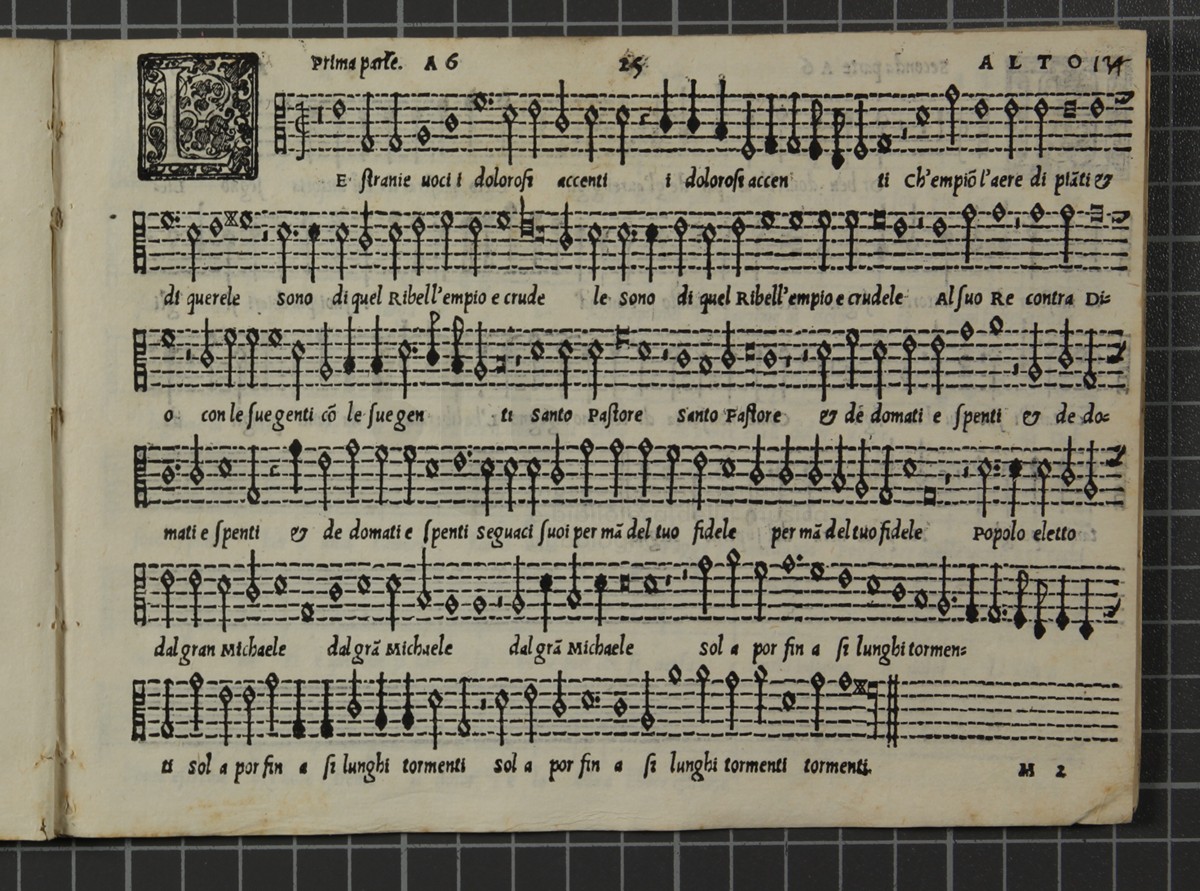 Prima parte. A 6 25 ALTO 134
LE stranie uoci i dolorosi accenti i dolorosi accen ti Ch'empiõ l'aere di piãti &
di querele sono di quel Ribell'empio e crude le sono di quel Ribell'empio e crudele Al suo Re contra Di=
o con le sue genti cõ le sue gen ti santo Pastore santo Pastore & de domati e spenti & de do=
mati e spenti & de domati e spenti seguaci suoi per mã del tuo fidele per mã del tuo fidele Popolo eletto
dal gran Michaele dal grã Michaele dal grã Michaele sol a por fin a si lunghi tormen=
ti sol a por fin a si lunghi tormenti sol a por fin a si lunghi tormenti tormenti.
M 2